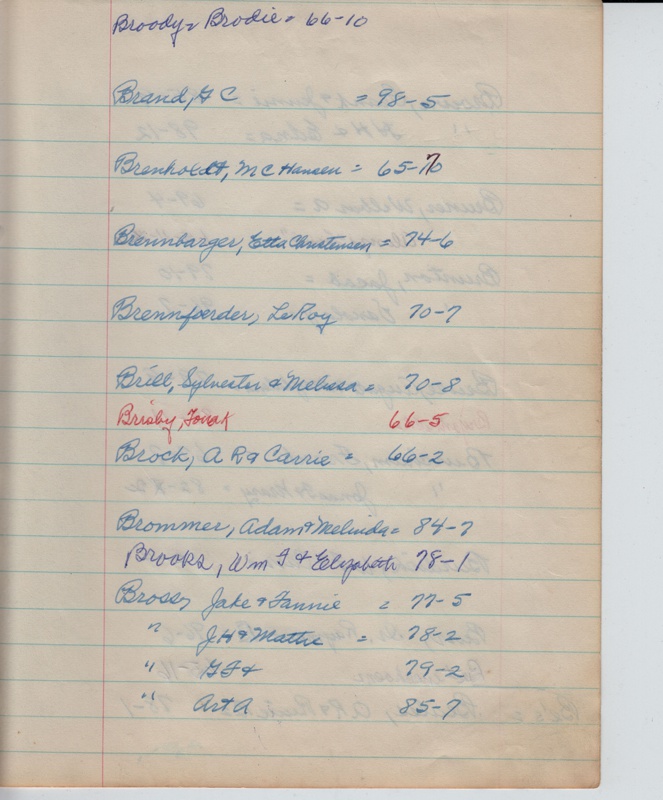 Broody = Brodie = 66-10
Brand, G C = 98-5
Brenholdt, M C Hansen = 65-10
Brennbarger, Etta Christensen = 74-6
Brennfoerder, LeRoy 70-7
Brill, Sylvester & Melissa = 70-8
Brisby, 66-5
Brock, A R & Carrie = 66-2
Brommer, Adam & Melinda = 84-7
Brooks, Wm F & Elizabeth 78-1
Bross, Jake & Fannie = 77-5
" J H & Mattie = 78-2
" G F & 79-2
" Art A 85-7